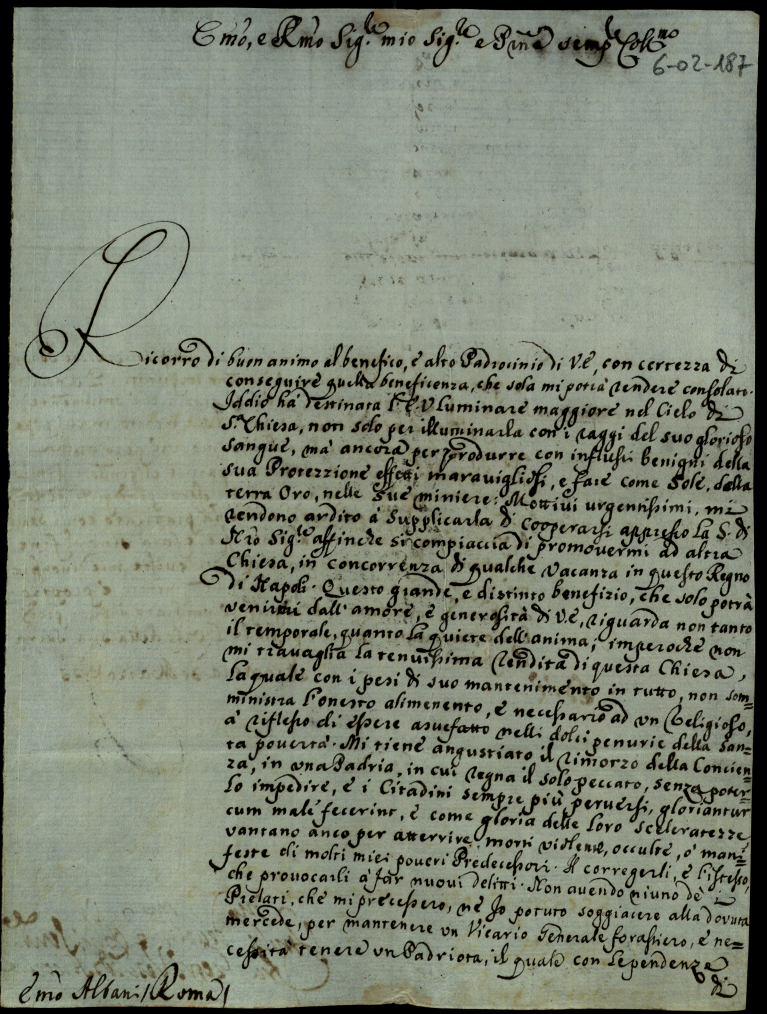 Emo, e Rmo Sig.re mio Sig.re e Pñe semp.re Col.mo
6-02-187
Ricorro di buon animo al benefico, e alto Padrocinio di V.E, con certezza di
conseguire quella beneficenza, che sola mi potrà rendere consolato.
Iddio ha destinata l'E.V luminare maggiore nel Cielo di
S.a Chiesa, non solo per illuminarla con i raggi del suo glorioso
sangue, ma ancora per produrre con influssi benigni della
sua Protezzione effetti maravigliosi, e fare come Sole, dalla
terra Oro, nelle sue miniere: Mottivi urgentissimi, mi
rendono ardito à supplicarla di cooperarsi appresso la S. di
Nro Sig.re affinche si compiaccia di promovermi ad altra
Chiesa, in concorrenza di qualche vacanza in questo Regno
di Napoli. Questo grande, e distinto benefizio, che solo potrà
venirmi dall'amore, e generosità di V.E, riguarda non tanto
il temporale, quanto la quiete dell'anima; imperoche non
mi travaglia la tenuissima rendita di questa Chiesa,
la quale con i pesi di suo mantenimento in tutto, non som=
ministra l'onesto alimenento, e necessario ad un Religioso,
à riflesso di essere asuefatto nelli dolci penurie della San=
ta povertà. Mi tiene angustiato il rimorzo della Concien=
za, in una Padria, in cui regna il solo peccato, senza poter=
lo impedire, e i Citadini sempre più perversi, gloriantur
cum male fecerint, e come gloria delle loro sceleratezze
vantano anco per atterrire, morti violente, occulte, o' mani=
feste di molti miei poveri Predecessori. Il corregerli, è l'istesso,
che provocarli à far nuovi delitti. Non avendo niuno de i
Prelati, che mi precessero, ne Io potuto soggiacere alla dovuta
mercede, per mantenere un Vicario Generale forastiero, è ne=
cessità tenere un Padriota, il quale con lependenze
di
Emo Albani (Roma)